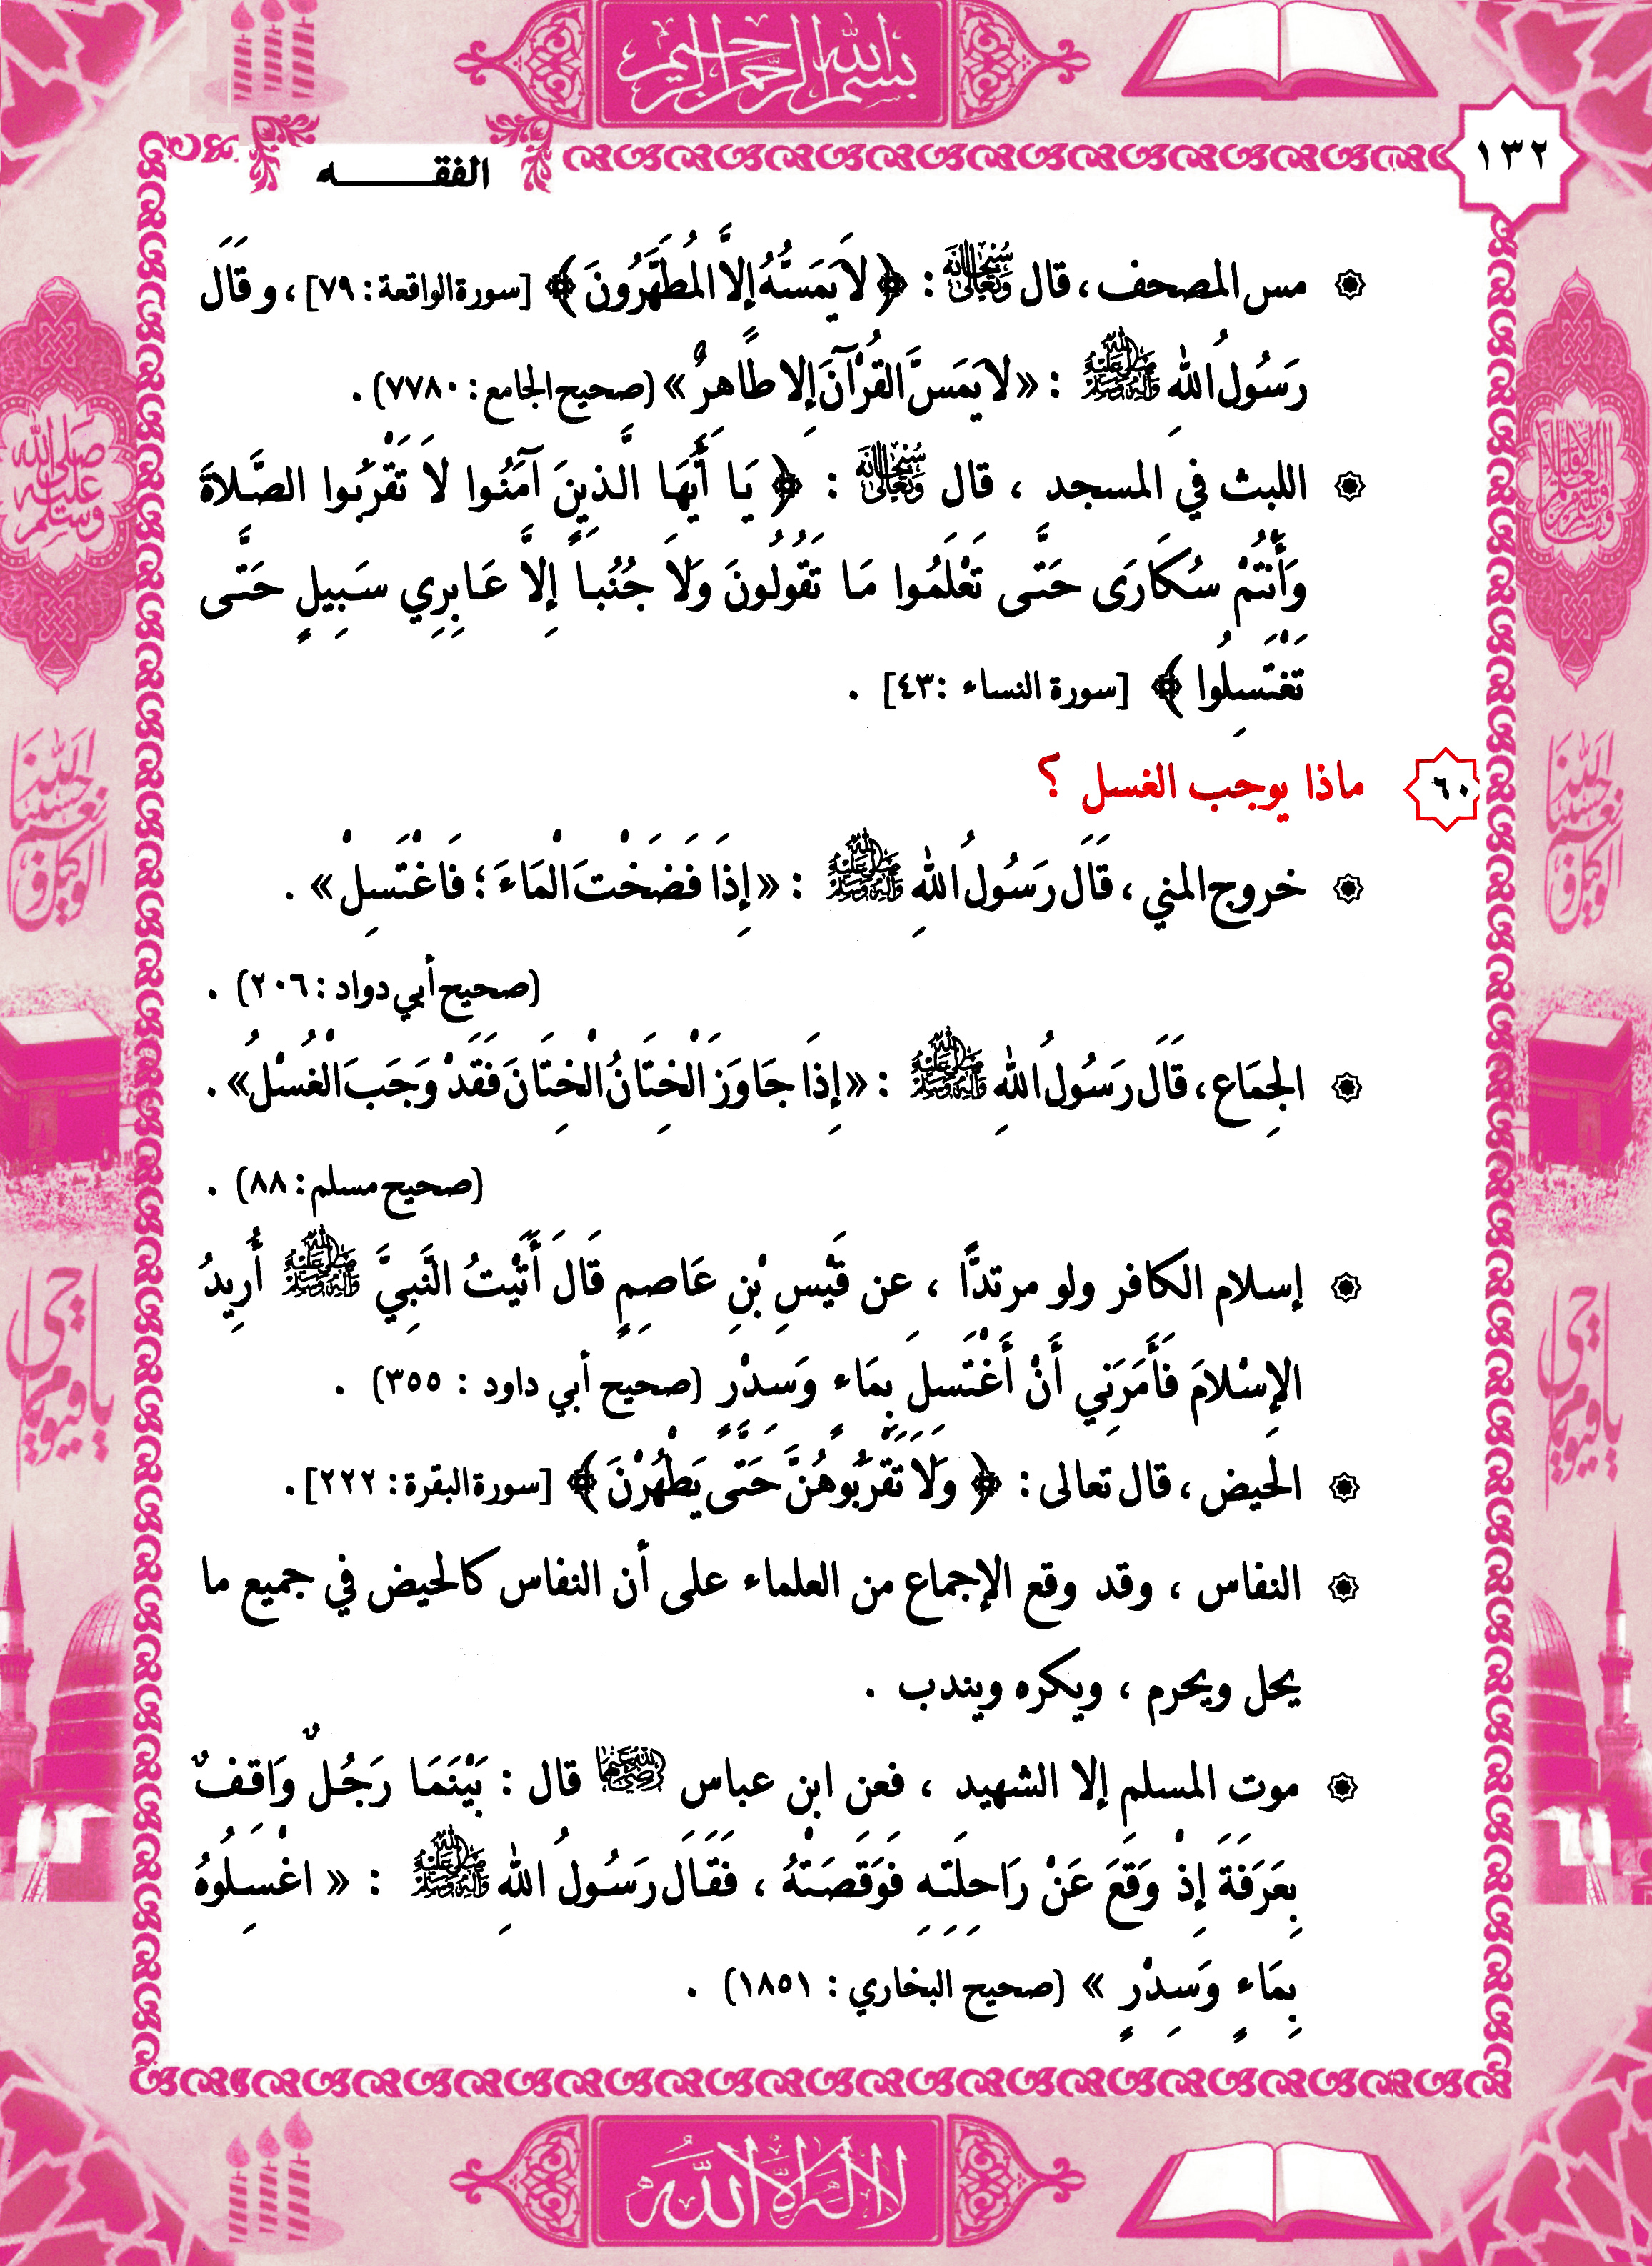 بسم الله الرحمن الرحيم
١٣٢
الفقـــــه
مس المصحف ، قال سُبْحَانَهُ وَتَعَالَى : ﴿ لاَ يَمَسُّهُ إِلاَّ المُطَهَّرُونَ ﴾ [سورة الواقعة : ٧٩] ، وقَالَ
رَسُولُ اللهِ صلى الله عليه وآله وسلم : « لا يَمَسَّ القُرْآنَ إِلا طَاهِرٌ » (صحيح الجامع : ٧٧٨٠) .
اللبث في المسجد ، قال سُبْحَانَهُ وَتَعَالَى : ﴿ يَا أَيُّهَا الَّذِينَ آمَنُوا لاَ تَقْرَبُوا الصَّلاةَ
وَأَنْتُمْ سُكَارَى حَتَّى تَعْلَمُوا مَا تَقُولُونَ وَلاَ جُنُباً إِلاَّ عَابِرِي سَبِيلٍ حَتَّى
تَغْتَسِلُوا ﴾ [سورة النساء : ٤٣] .
٦٠ ماذا يوجب الغسل ؟
خروج المني ، قَالَ رَسُولُ اللهِ صلى الله عليه وآله وسلم : « إِذَا فَضَخْتَ الْمَاءَ ؛ فَاغْتَسِلْ » .
(صحيح أبي دواد : ٢٠٦) .
الجِمَاع ، قَالَ رَسُولُ اللهِ صلى الله عليه وآله وسلم : « إِذَا جَاوَزَ الْخِتَانُ الْخِتَانَ فَقَدْ وَجَبَ الْغُسْلُ » .
(صحيح مسلم : ٨٨) .
إسلام الكافر ولو مرتدًّا ، عن قَيْسِ بْنِ عَاصِمٍ قَالَ أَتَيْتُ النَّبِيَّ صلى الله عليه وآله وسلم أُرِيدُ
الإِسْلامَ فَأَمَرَنِي أَنْ أَغْتَسِلَ بِمَاءٍ وَسِدْرٍ (صحيح أبي داود : ٣٥٥) .
الحيض ، قال تعالى : ﴿ وَلَا تَقْرَبُوهُنَّ حَتَّى يَطْهُرْنَ ﴾ [سورة البقرة : ٢٢٢] .
النفاس ، وقد وقع الإجماع من العلماء على أن النفاس كالحيض في جميع ما
يحل ويحرم ، ويكره ويندب .
موت المسلم إلا الشهيد ، فعن ابن عباس رضي الله عنهما قال : بَيْنَمَا رَجُلٌ وَاقِفٌ
بِعَرَفَةَ إِذْ وَقَعَ عَنْ رَاحِلَتِهِ فَوَقَصَتْهُ ، فَقَالَ رَسُولُ اللهِ صلى الله عليه وآله وسلم : « اغْسِلُوهُ
بِمَاءٍ وَسِدْرٍ » (صحيح البخاري : ١٨٥١) .
لا إله إلا الله
صلى الله عليه وسلم
حسبنا الله ونعم الوكيل
حسبنا الله ونعم الوكيل
يا حي يا قيوم
يا حي يا قيوم